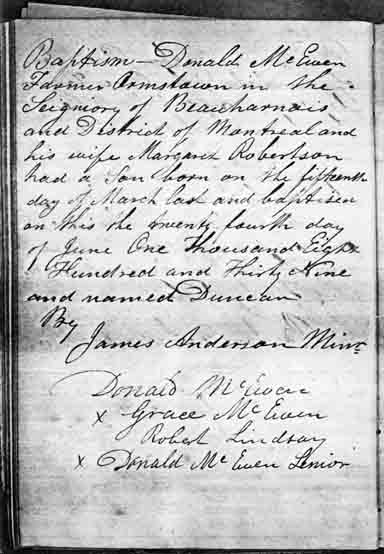 Baptism — Donald McEwen
Farmer Ormstown in the
Seigniory of Beauharnais
and District of Montreal and
his wife Margaret Robertson
had a Son born on the fifteenth
day of March last and baptised
on this the twenty fourth day
of June One Thousand Eight
Hundred and Thirty Nine
and named Duncan
By
James Anderson Minr
Donald McEwen
x Grace McEwen
Robert Lindsay
x Donald McEwen Senior